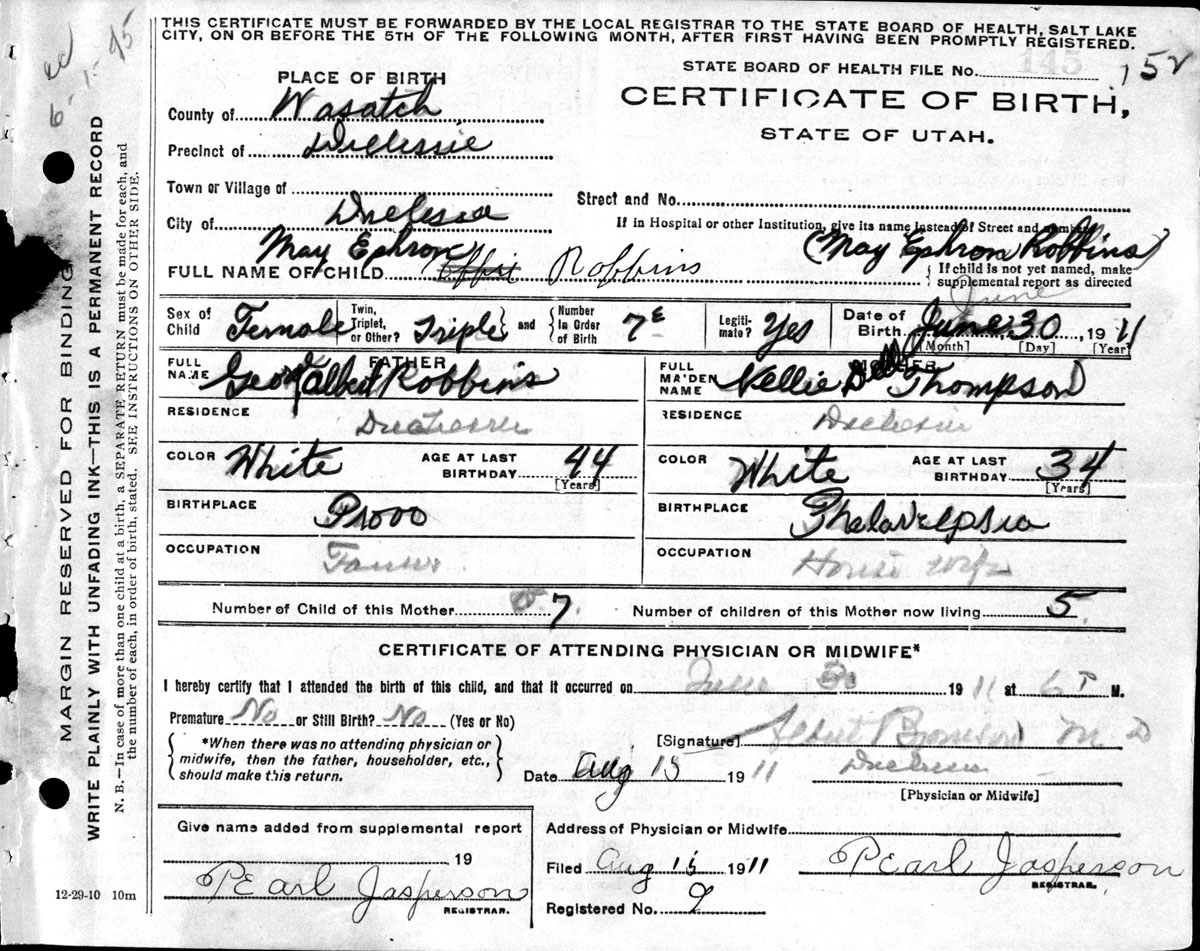 THIS CERTIFICATE MUST BE FORWARDED BY THE LOCAL REGISTRAR TO THE STATE BOARD OF HEALTH, SALT LAKE
CITY, ON OR BEFORE THE 5TH OF THE FOLLOWING MONTH, AFTER FIRST HAVING BEEN PROMPTLY REGISTERED.
PLACE OF BIRTH
STATE BOARD OF HEALTH FILE No. 152
145
County of Wasatch
CERTIFICATE OF BIRTH,
STATE OF UTAH.
Precinct of
Town or Village of
Street and No.
City of
If in Hospital or other Institution, give its name instead of Street and number
May Ephron (May Ephron Robbins)
FULL NAME OF CHILD Robbins
If child is not yet named, make
supplemental report as directed
June
Sex of Child Female Twin, Triplet, or Other? Triple and Number in Order of Birth 7 Legitimate? Yes Date of Birth June 30, 1911
[Month] [Day] [Year]
FULL NAME FATHER George Albert Robbins
FULL MAIDEN NAME MOTHER Nellie Dell Thompson
RESIDENCE
RESIDENCE
COLOR White AGE AT LAST BIRTHDAY 44 [Years]
COLOR White AGE AT LAST BIRTHDAY 34 [Years]
BIRTHPLACE Provo
BIRTHPLACE Phelavelpsia
OCCUPATION
OCCUPATION House wife
Number of Child of this Mother 7 Number of children of this Mother now living 5
CERTIFICATE OF ATTENDING PHYSICIAN OR MIDWIFE*
I hereby certify that I attended the birth of this child, and that it occurred on June 30 1911 at 6 P M.
Premature No or Still Birth? No (Yes or No)
*When there was no attending physician or
midwife, then the father, householder, etc.,
should make this return.
[Signature] Albert M D
Date Aug 15 1911
[Physician or Midwife]
Give name added from supplemental report
19
Pearl Jasperson
REGISTRAR.
Address of Physician or Midwife
Filed Aug 15 1911 Pearl Jasperson
REGISTRAR.
Registered No. 9
12-29-10 10m
MARGIN RESERVED FOR BINDING
WRITE PLAINLY WITH UNFADING INK—THIS IS A PERMANENT RECORD
N. B.—In case of more than one child at a birth, a SEPARATE RETURN must be made for each, and
the number of each, in order of birth, stated. SEE INSTRUCTIONS ON OTHER SIDE.